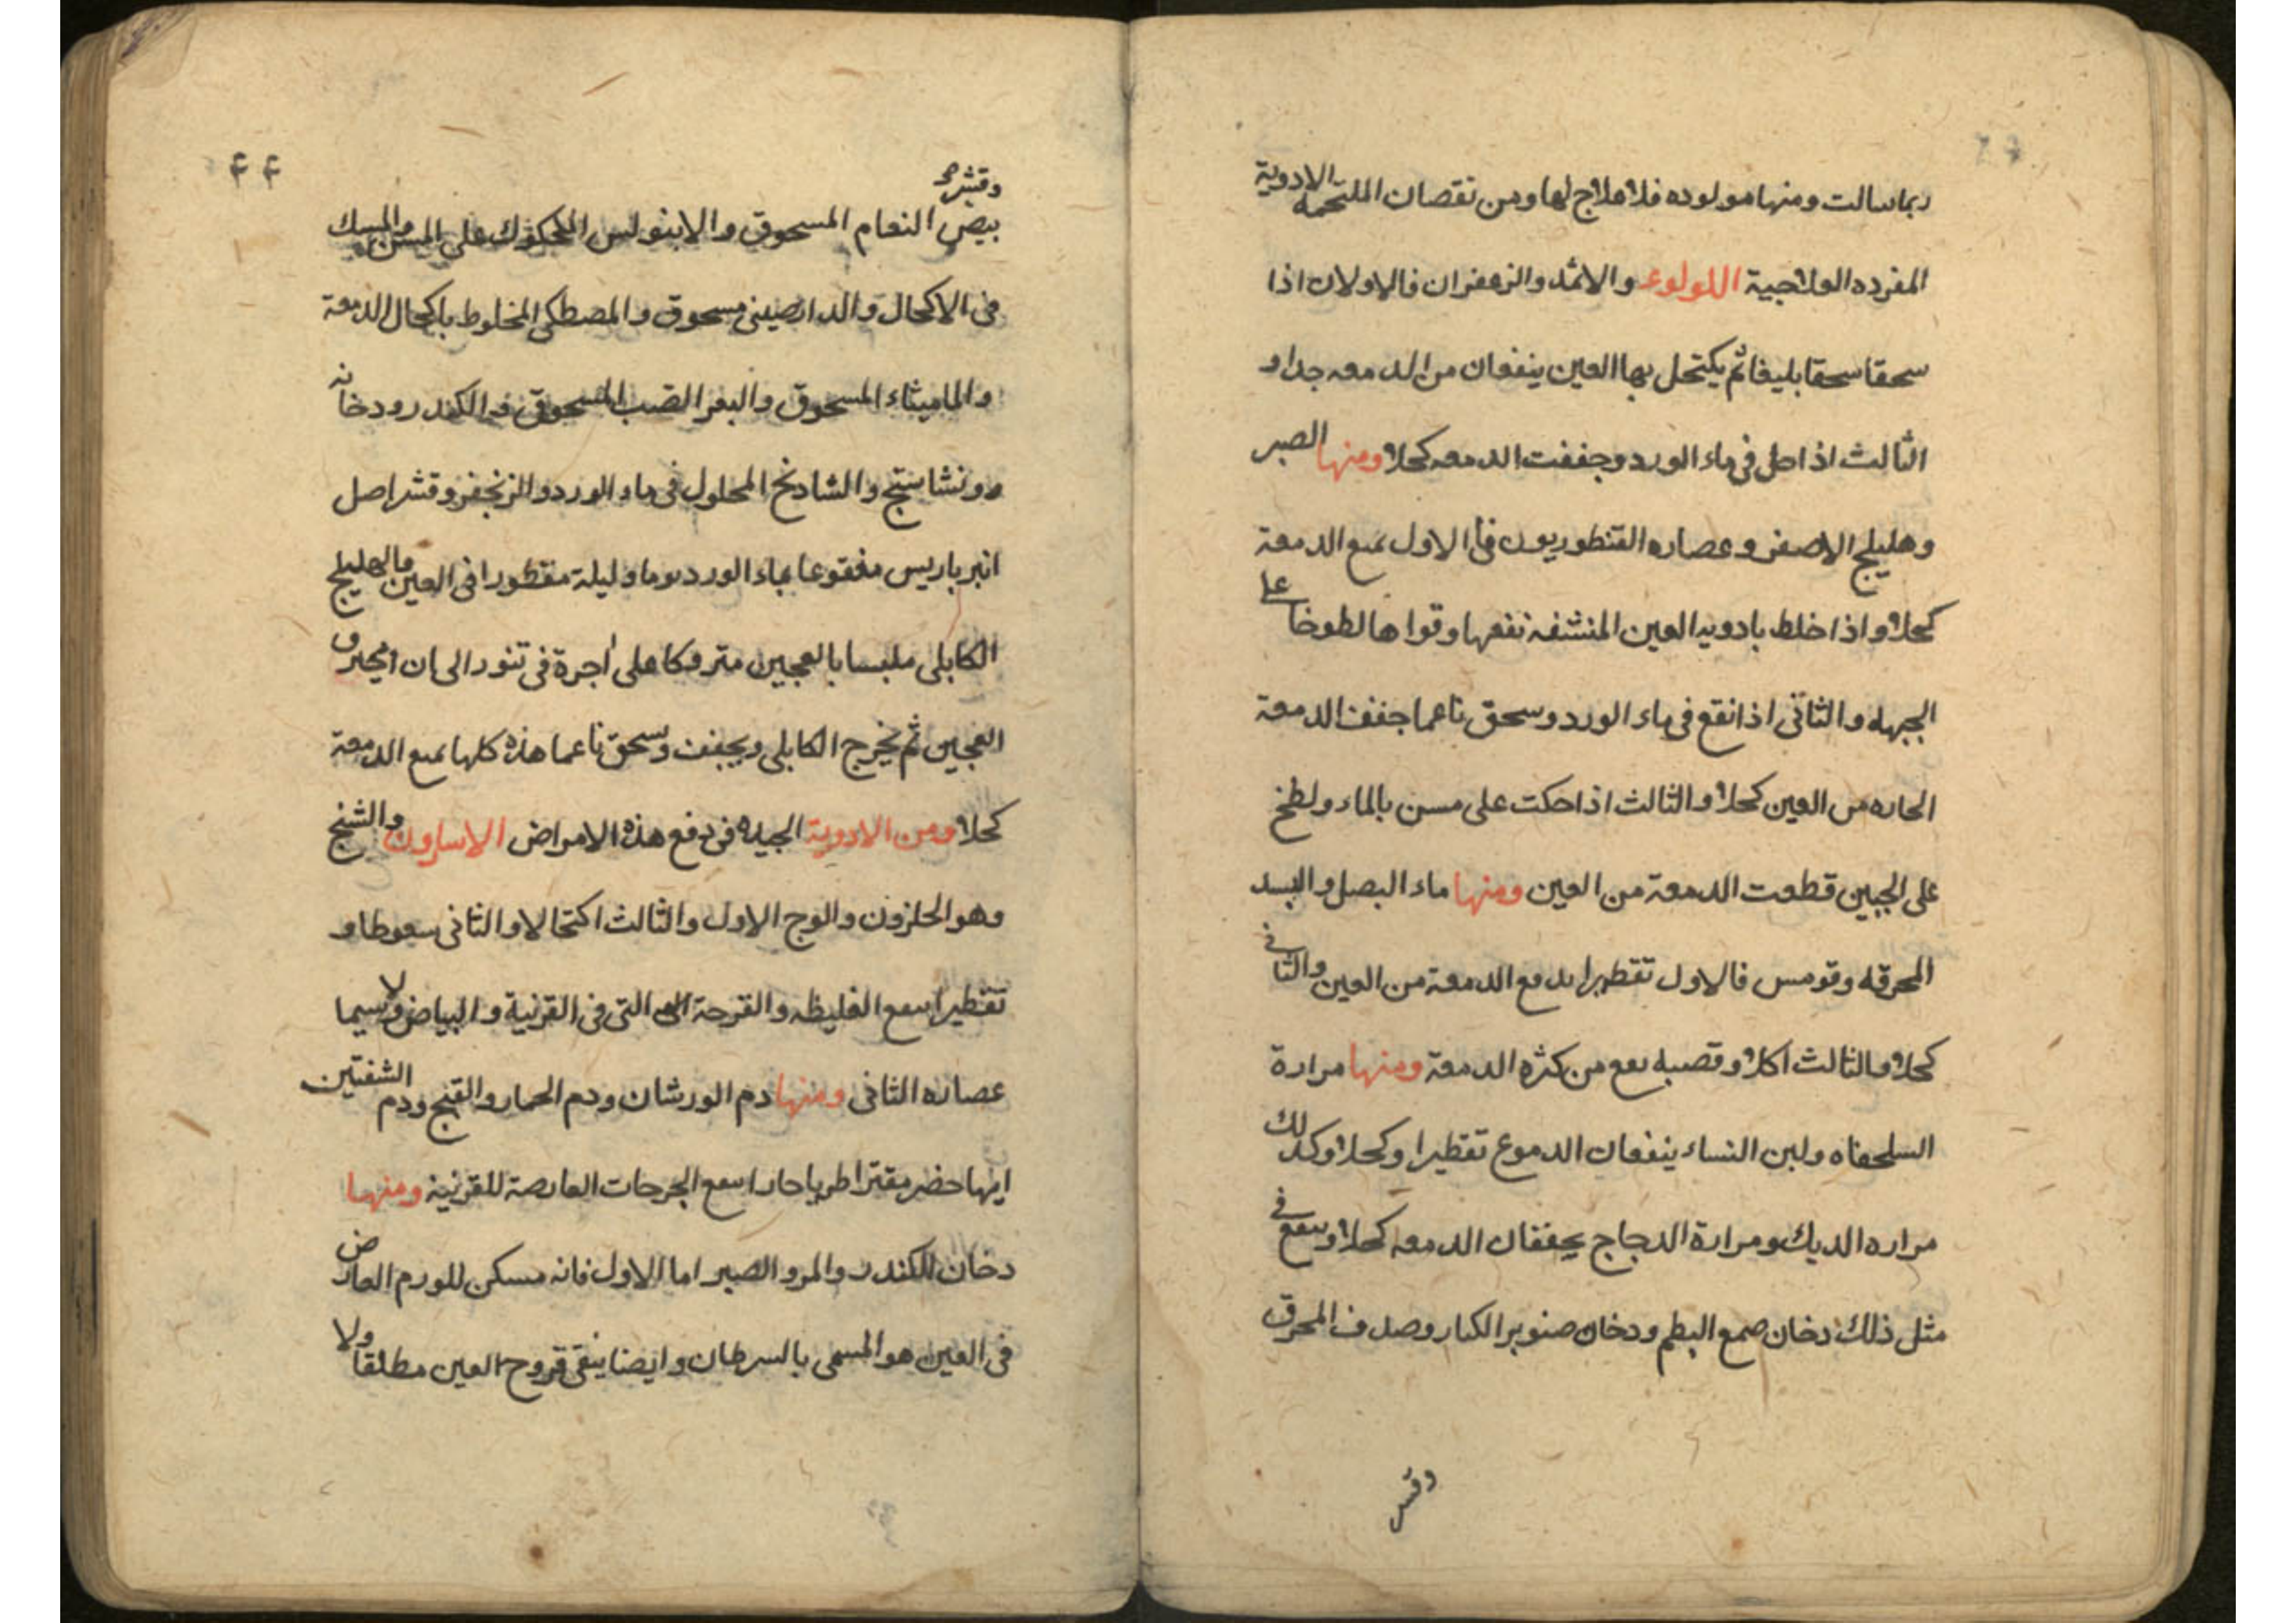 ربما سالت ومنها مولوده فلا علاج لها ومن نقصان الملتحمه الادوية
المفرده العلاجية اللولوء والاثمد والزعفران فالاولان اذا
سحقا سحقا بليغا ثم يكتحل بها العين ينفعان من الدمعه جدا و
الثالث اذا حل في ماء الورد وجففت الدمعه كحلا ومنها الصبر
وهليلج الاصفر وعصاره القنطوريون فا الاول يمنع الدمعة
كحلا واذا خلط بادويه العين المنشفه نفعها وقواها لطوخا على
الجبهه والثانى اذا نقع في ماء الورد وسحق ناعما جفف الدمعة
الحاره من العين كحلا والثالث اذا حكت على مسن بالماء ولطخ
على الجبين قطعت الدمعة من العين ومنها ماء البصل والبسد
المحرقه وقومس فالاول تقطيرا يدفع الدمعة من العين والثانى
كحلا والثالث اكلا وقصبه ينفع من كثره الدمعة ومنها مرارة
السلحفاه ولبن النساء ينفعان الدموع تقطيرا وكحلا وكذلك
مراره الديك ومرارة الدجاج يجففان الدمعه كحلا وينفع في
مثل ذلك دخان صمغ البطم ودخان صنوبر الكبار وصدف المحرق
وقشر
٤٤
وقشر
بيض النعام المسحوق والابنولس المحكوك على المسن والمسك
فى الاكحال والدارصينى مسحوق والمصطكى المخلوط باكحال الدمعة
والماميثاء المسحوق والبعر الضب المسحوق والكندر ودخانه
ونشاستج والشادنج المحلول فى ماء الورد والزنجفر وقشر اصل
انبرباريس منقوعا بماء الورد يوما وليلة مقطورا فى العين والهليلج
الكابلى ملبسا بالعجين متروكا على اجرة فى تنور الى ان يحترق
العجين ثم يخرج الكابلى ويجفف وسحق ناعما هذه كلها يمنع الدمعة
كحلا ومن الادوية الجيده فى دفع هذه الامراض الاسارون والشنج
وهو الحلزون والوج الاول والثالث اكتحالا والثانى سعوطا و
تقطيرا ينفع الغليظه والقرحة التى فى القرنية والبياض ولا سيما
عصاره الثانى ومنها دم الورشان ودم الحمار والقبج ودم الشفنين
ايها حضر مقترا طريا حارا ينفع الجرحات العارضة للقرنية ومنها
دخان الكندر والمر والصبر اما الاول فانه مسكن للورم العارض
فى العين هو المسمى بالسرطان وايضا ينقى قروح العين مطلقا ولا